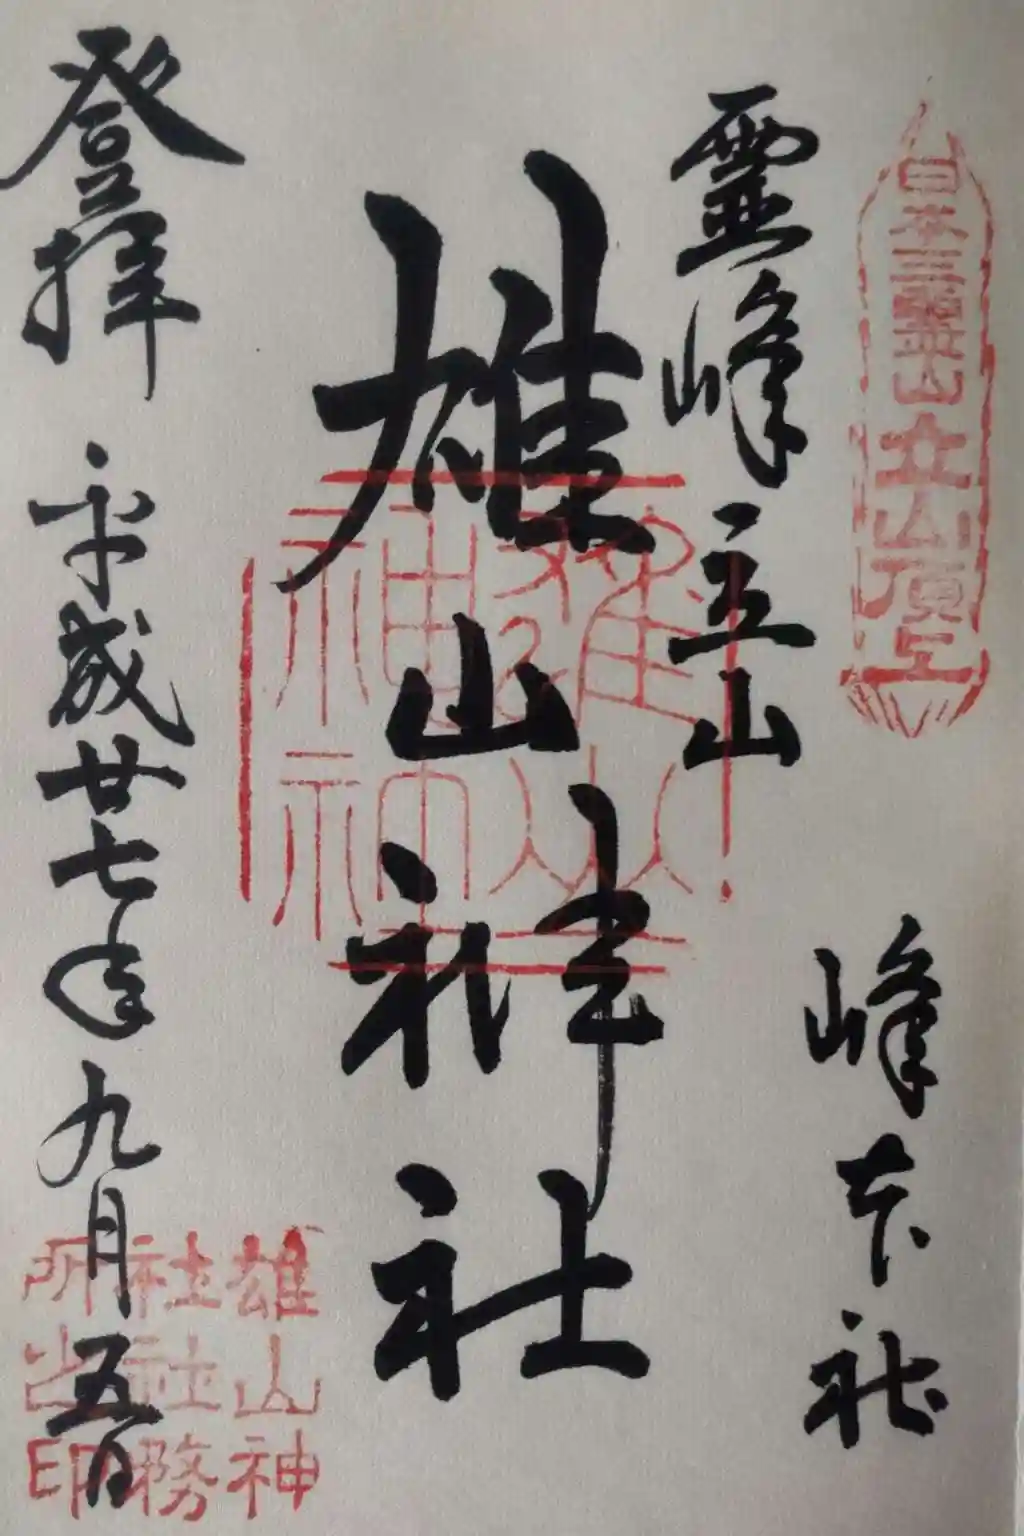 日本三霊山立山頂上
峰本社
霊峰立山
雄山神社
雄山
神社
神印
登拝
平成廿七年九月五日
雄山神
社社務
所之印